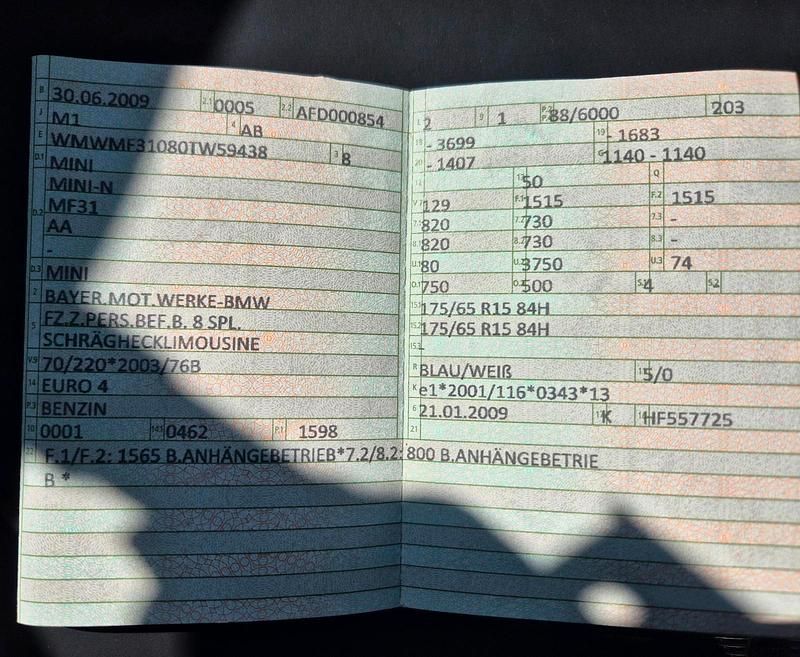 B 30.06.2009 2.1 0005 2.2 AFD000854
J M1 4 AB
E WMWMF31080TW59438 3 8
D.1 MINI
MINI-N
D.2 MF31
AA
-
D.3 MINI
2 BAYER.MOT.WERKE-BMW
5 FZ.Z.PERS.BEF.B. 8 SPL.
SCHRÄGHECKLIMOUSINE
V.9 70/220*2003/76B
14 EURO 4
P.3 BENZIN
10 0001 14.1 0462 P.1 1598
22 F.1/F.2: 1565 B.ANHÄNGEBETRIEB*7.2/8.2: 800 B.ANHÄNGEBETRIE
B *
L 2 9 1 P.2 P.4 88/6000 203
18 - 3699 19 - 1683
20 - 1407 G 1140 - 1140
13 50 Q
V.7 129 F.1 1515 F.2 1515
7.1 820 7.2 730 7.3 -
8.1 820 8.2 730 8.3 -
U.1 80 U.2 3750 U.3 74
O.1 750 O.2 500 S.1 4 S.2
15.1 175/65 R15 84H
15.2 175/65 R15 84H
15.3
R BLAU/WEIß 11 5/0
K e1*2001/116*0343*13
6 21.01.2009 17 K 16 HF557725
21